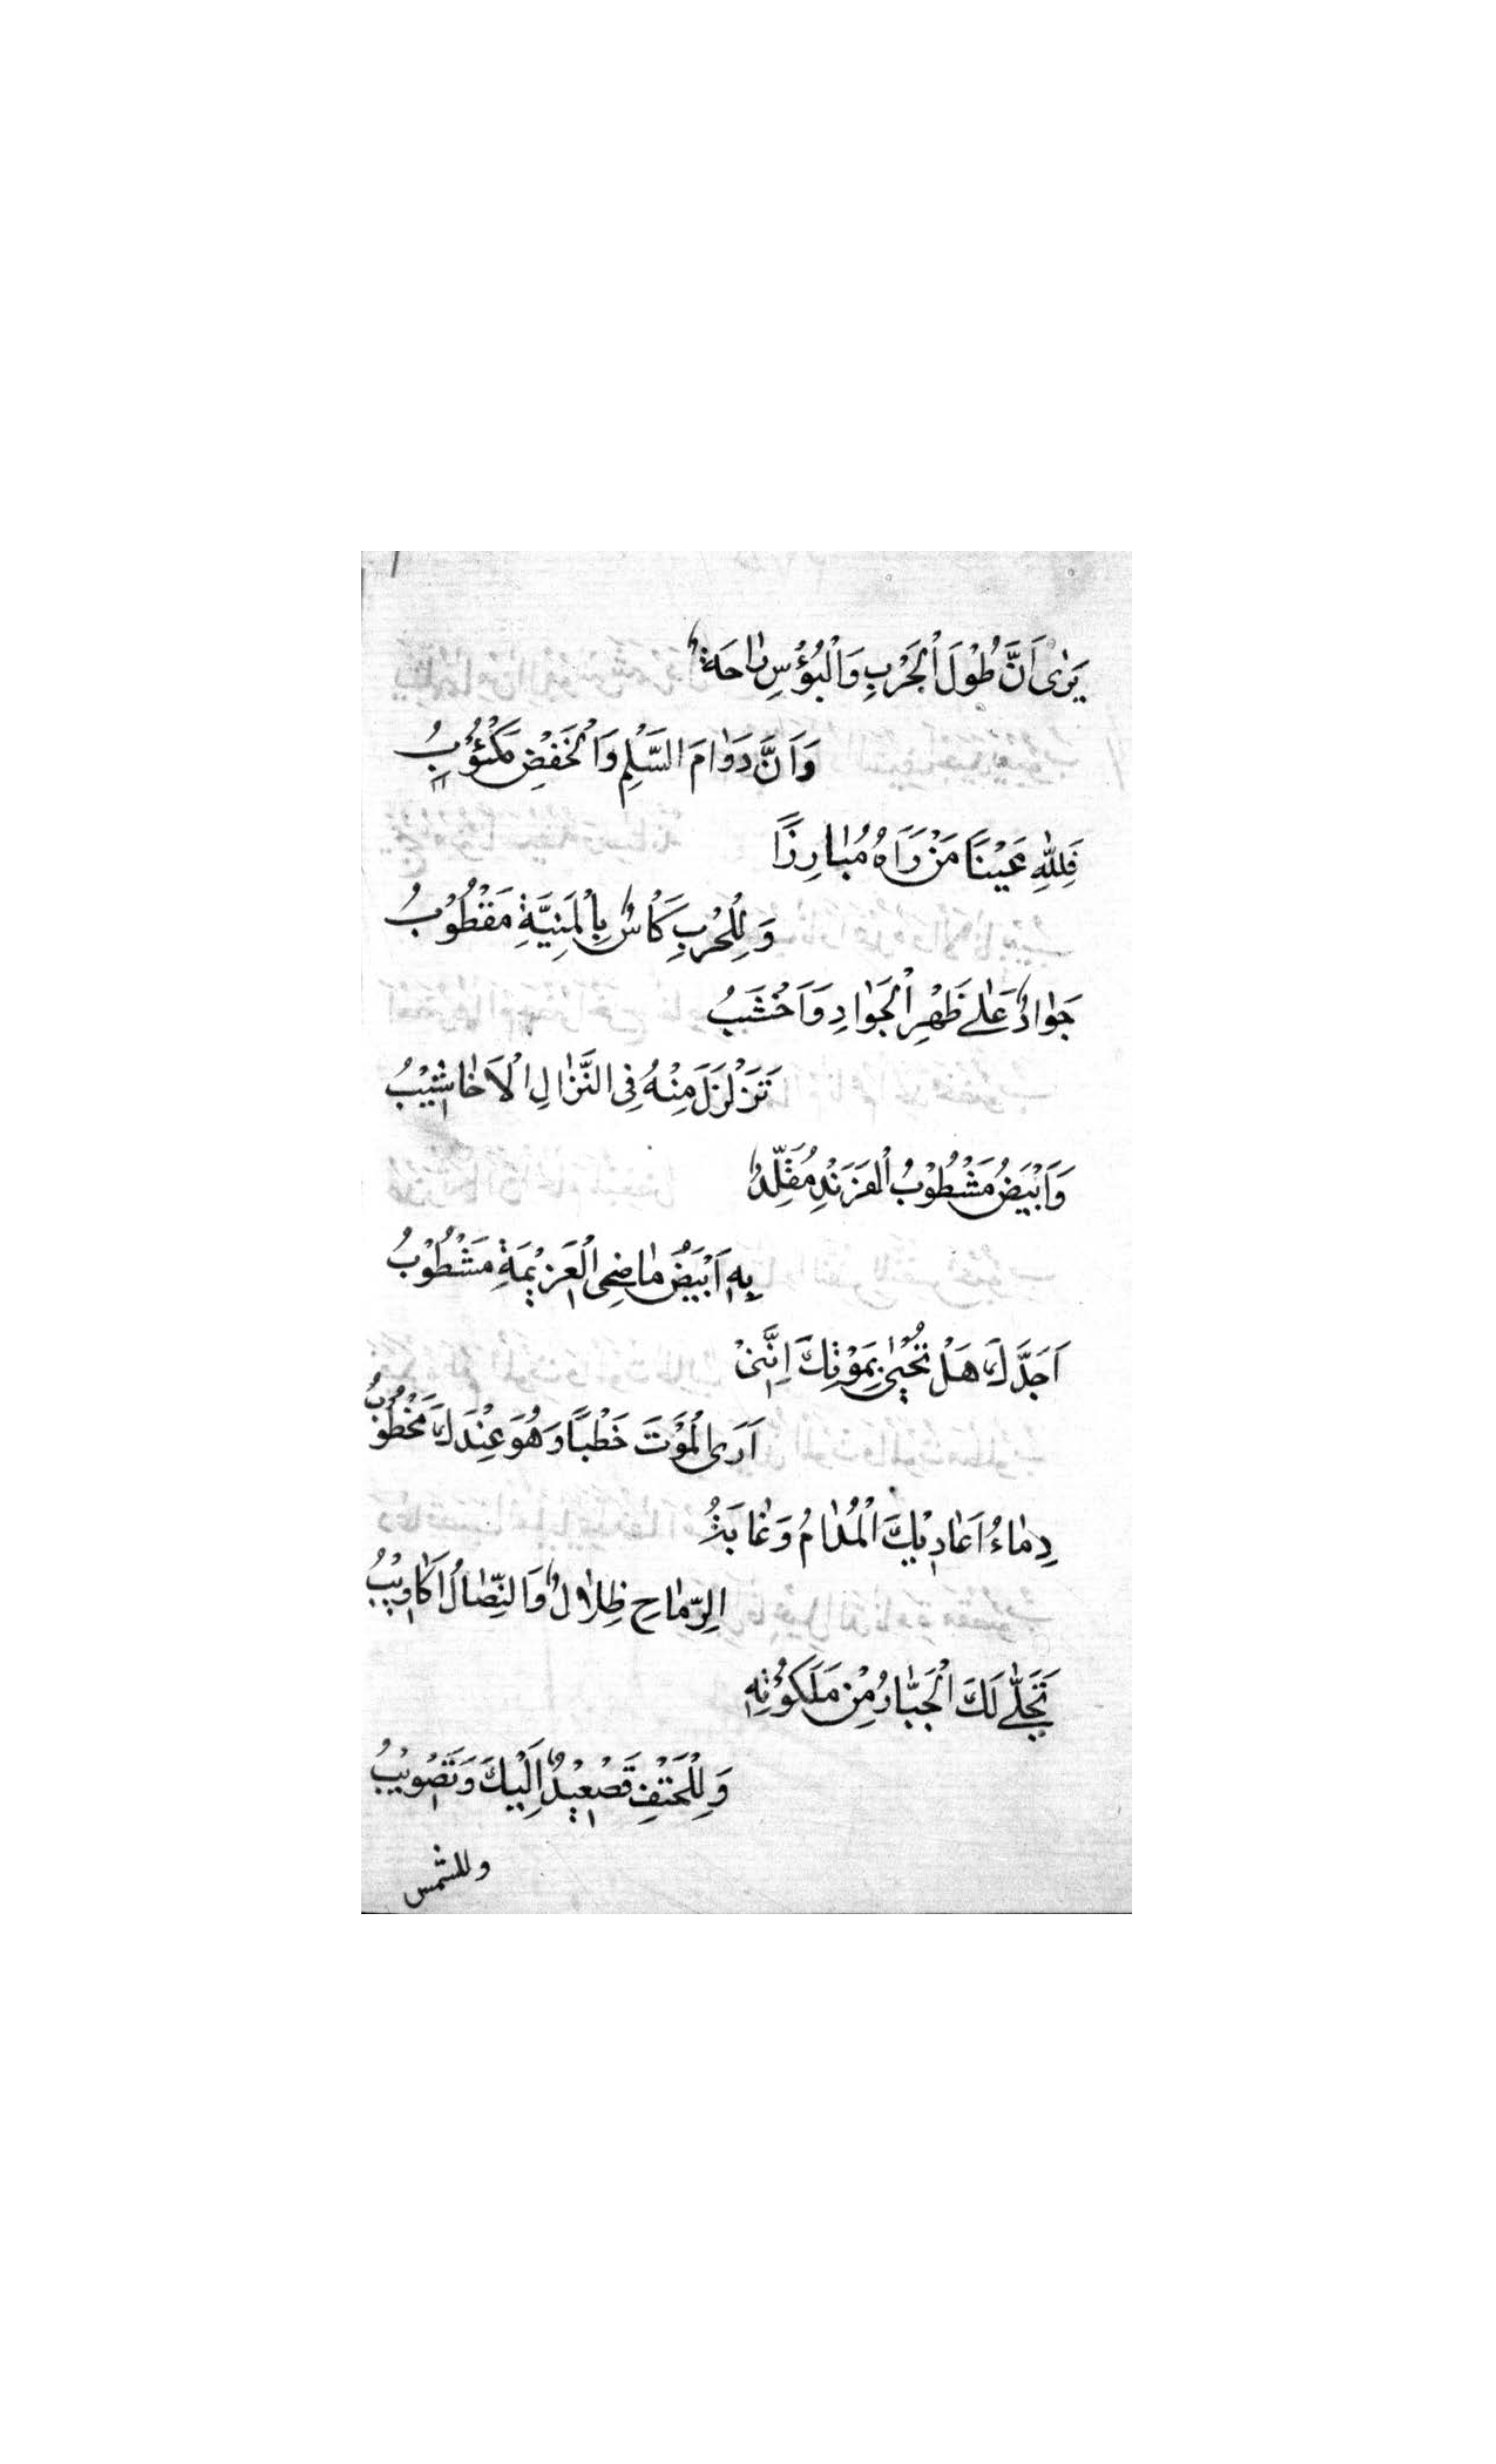 يَرٰى اَنَّ طُوْلَ الْحَرْبِ وَالْبُؤْسِ رٰاحَةٌ
وَاَنَّ دَوٰامَ السَّلْمِ وَالْخَفْضِ مَكْئُوْبُ
فَلِلّٰهِ عَيْنًا مَنْ رَاَهُ مُبٰارِزًا
وَلِلْحَرْبِ كَاْسٌ بِالْمَنِيَّةِ مَقْطُوْبُ
جَوٰادٌ عَلٰى ظَهْرِ الْجَوٰادِ وَاَخْشَبُ
تَزَلْزَلَ مِنْهُ فِى النَّزٰالِ الْاَخٰاشِيْبُ
وَاَبْيَضُ مَشْطُوْبُ الْفَرَنْدِ مُقَلَّدٌ
بِهٖ اَبْيَضٌ مٰاضِى الْعَزِيْمَةِ مَشْطُوْبُ
اَجَدَّكَ هَلْ تُحْيٰى بِمَوْتِكَ اِنَّنِىْ
اَرَى الْمَوْتَ خَطْبًا وَهُوَ عِنْدَكَ مَخْطُوْبُ
دِمٰاءُ اَعٰادِيْكَ الْمُدٰامُ وَغٰابَةُ
الرِّمٰاحِ ظِلٰالٌ وَالنِّصٰالُ اَكٰاوِيْبُ
تَجَلّٰى لَكَ الْجَبّٰارُ مِنْ مَلَكُوْتِهٖ
وَلِلْحَتْفِ تَصْعِيْدٌ اِلَيْكَ وَتَصْوِيْبُ
وللشمس